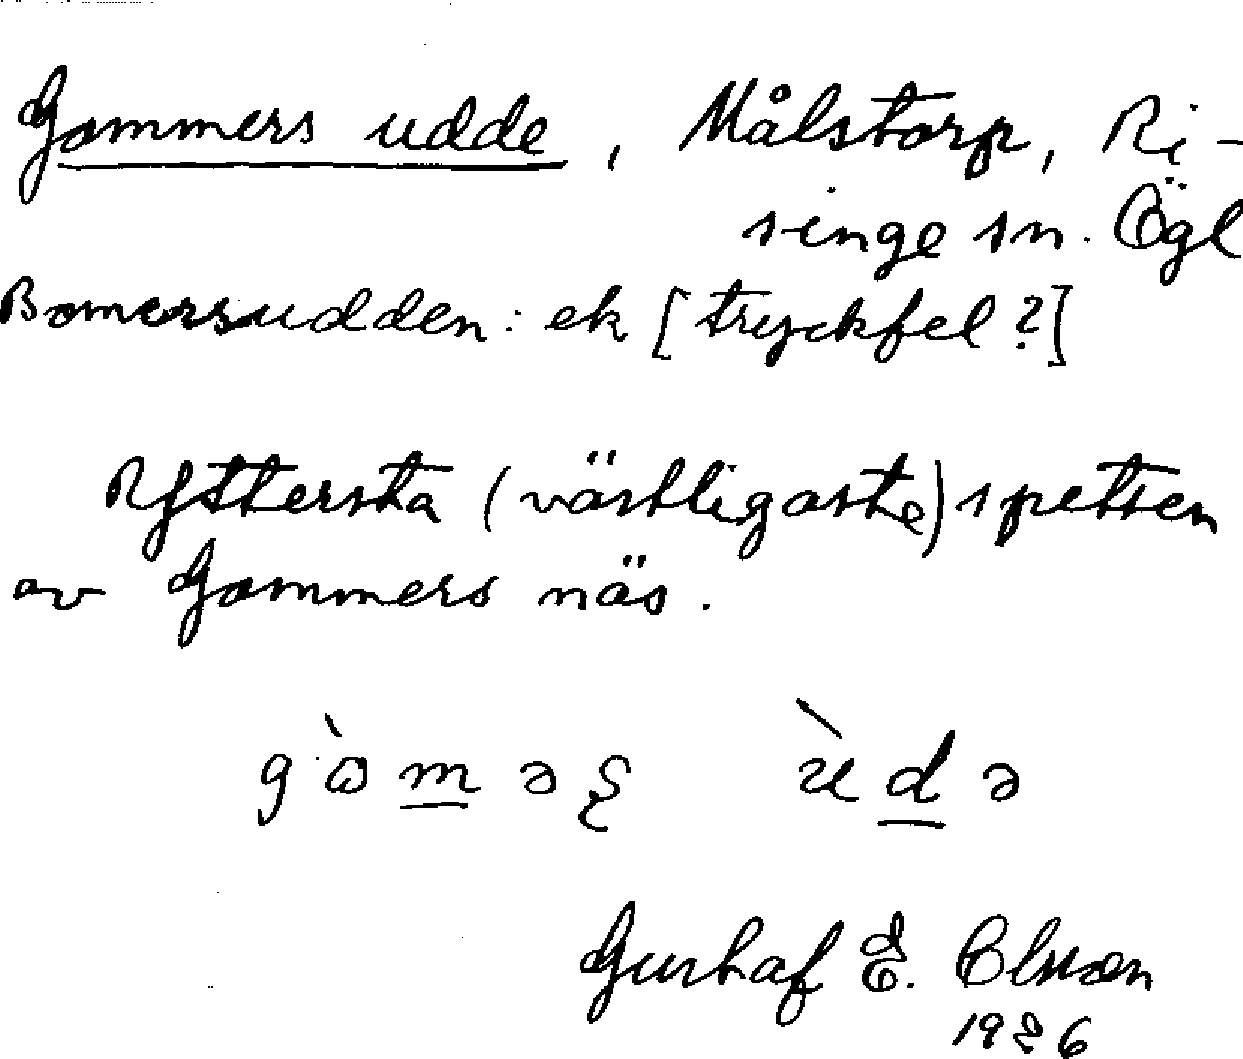 Gommers udde, Målstorp, Ri-
singe sn. Ögl
Bomersudden: ek [tryckfel?]
Yttersta (västligaste) spetsen
av Gommers näs.
Gustaf E. Olsson
1926